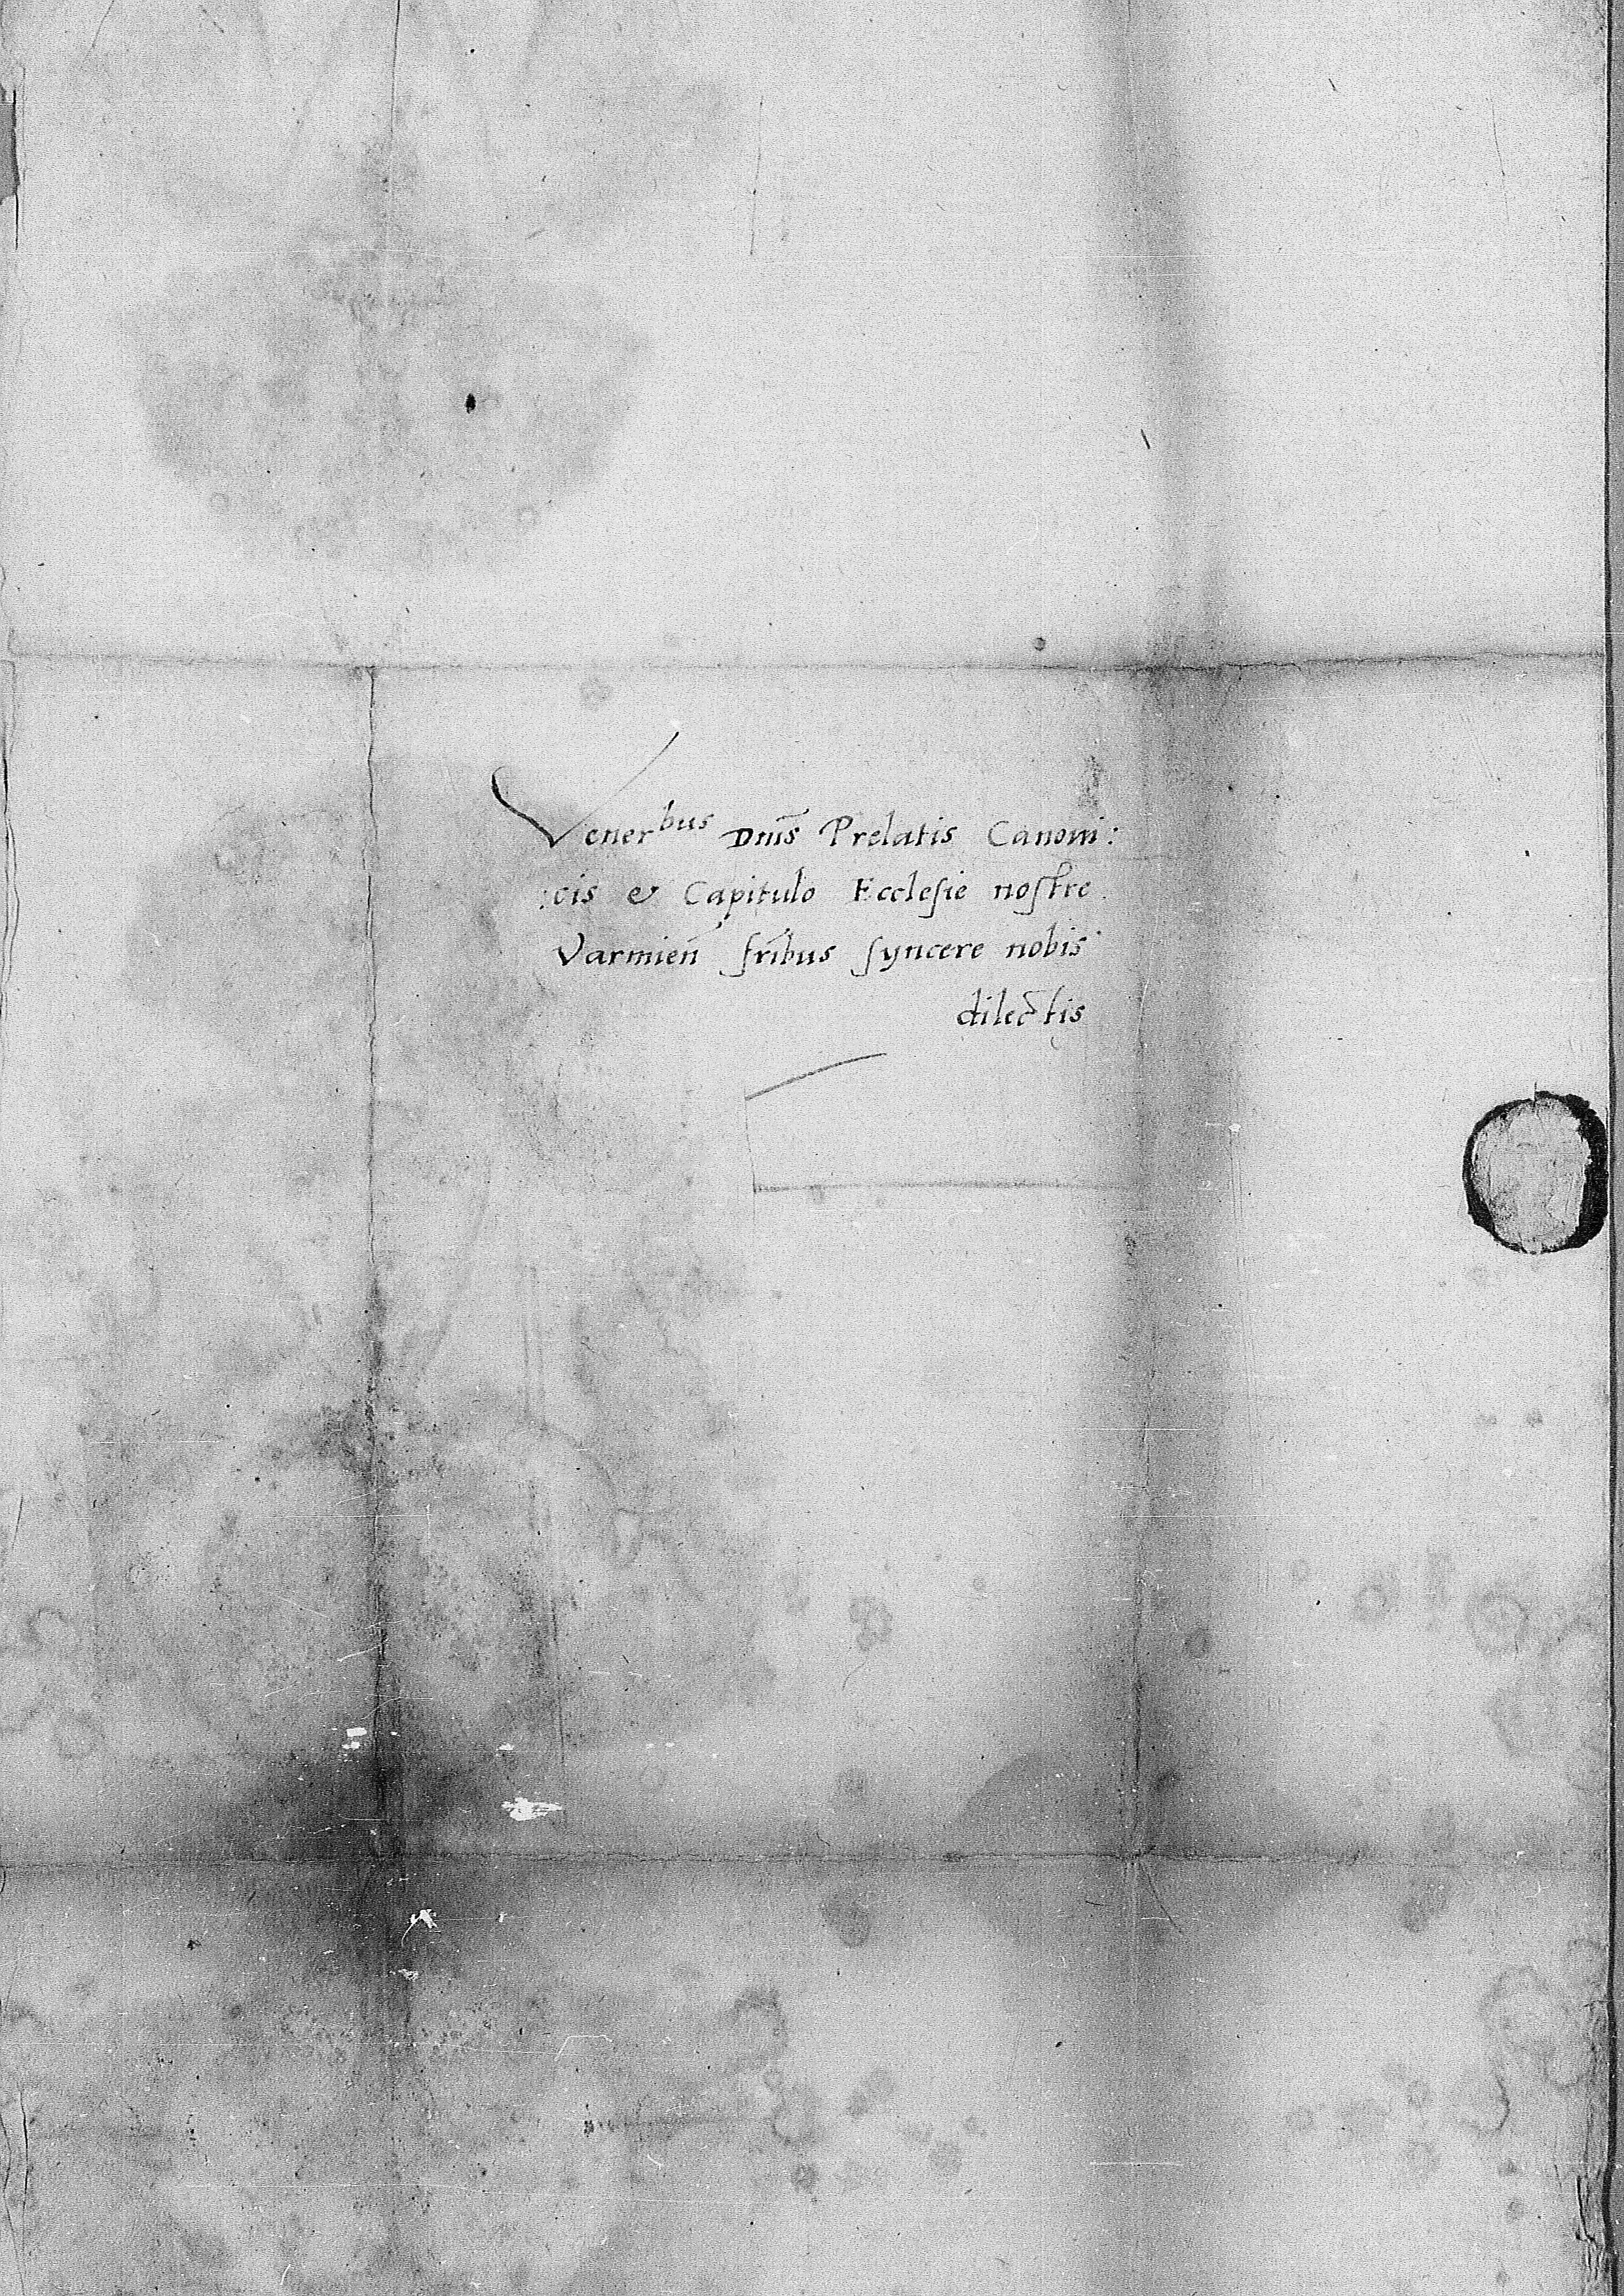 Venerbus Dnis̄ Prelatis Canoni:
:cis & Capitulo Ecclesie nostre.
Varmien̄ frībus syncere nobis
dilectis